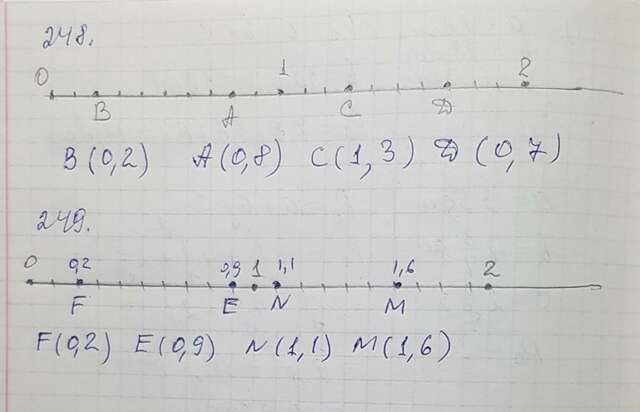 248.
0 1 2
B A C D
B(0,2) A(0,8) C(1,3) D(0,7)
249.
0 0,2 0,9 1 1,1 1,6 2
F E N M
F(0,2) E(0,9) N(1,1) M(1,6)